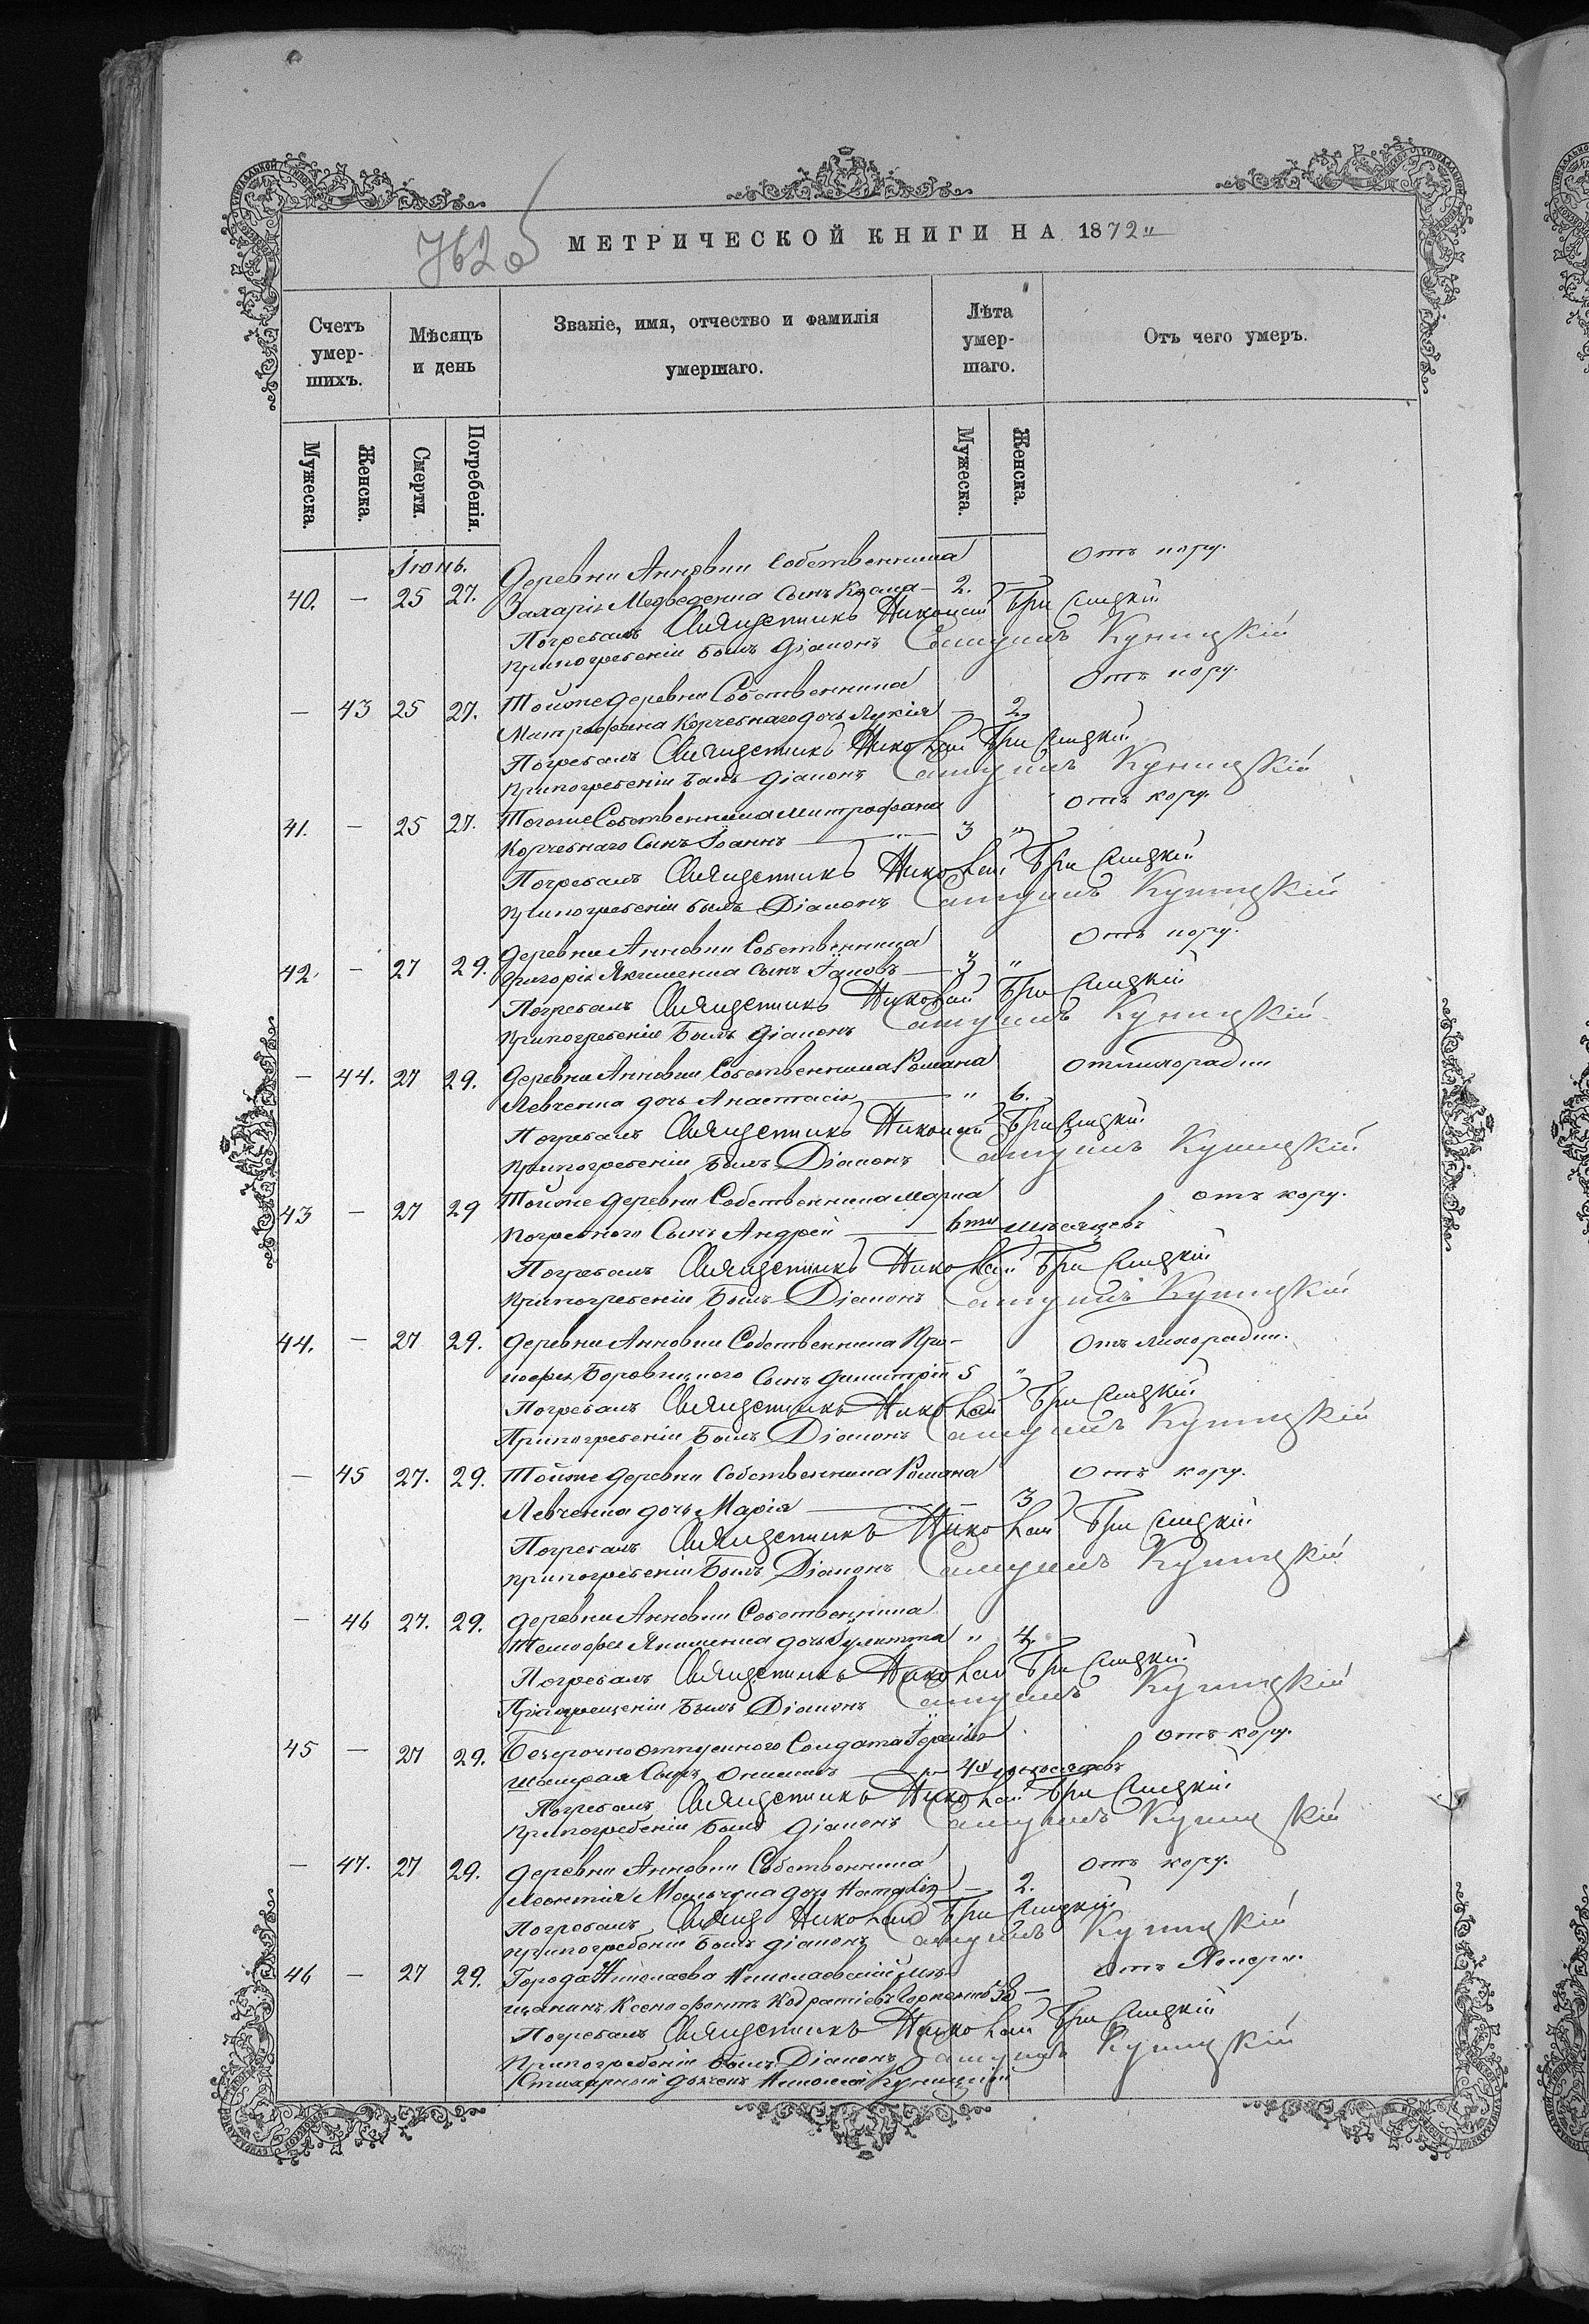 762 об
МЕТРИЧЕСКОЙ КНИГИ НА 1872
Счетъ умер-шихъ.
Мѣсяцъ и день
Званіе, имя, отчество и фамилія умершаго.
Лѣта умер-шаго.
Отъ чего умеръ.
Мужеска.
Женска.
Смерти.
Погребенія.
Мужеска.
Женска.
Іюнь.
Деревни Анновки Собственника Отъ кору.
40. — 25 27. Захарія Медведенка Сынъ Козма — 2.
Погребалъ Священникъ Николай
При погребеніи былъ Діаконъ Куницкій
Тойже деревни Собственника Отъ кору.
— 43 25 27. Митрофана Корчебнаго дочь Лукія — 2.
Погребалъ Священникъ Николай
При погребеніи былъ Діаконъ Куницкій
41. — 25 27. Тогоже Собственника Митрофана Отъ кору.
Корчебнаго Сынъ Іоаннъ — 3 "
Погребалъ Священникъ Николай
При погребеніи былъ Діаконъ Куницкій
Деревни Анновки Собственника Отъ кору.
42. — 27 29. Григорія Якименка Сынъ Іаковъ — 3 "
Погребалъ Священникъ Николай
При погребеніи былъ Діаконъ Куницкій
— 44. 27 29. Деревни Анновки Собственника Романа Отъ лихорадки
Левченка дочь Анастасія — " 6.
Погребалъ Священникъ Николай
При погребеніи былъ Діаконъ Куницкій
43 — 27 29 Тойже деревни Собственника Марка отъ кору.
Погребного Сынъ Андрей — 6ти мѣсяцевъ
Погребалъ Священникъ Николай
При погребеніи былъ Діаконъ Куницкій
44. — 27 29. Деревни Анновки Собственника Про- Отъ лихорадки.
кофія Боровицкого Сынъ Димитрій 5 "
Погребалъ Священникъ Николай
При погребеніи былъ Діаконъ Куницкій
— 45 27. 29. Тойже деревни Собственника Романа Отъ кору.
Левченка дочь Марія — 3
Погребалъ Священникъ Николай
При погребеніи былъ Діаконъ Куницкій
— 46 27. 29. Деревни Анновки Собственника
Тимофея Якименка дочь Іулитта " 4.
Погребалъ Священникъ Николай
былъ Діаконъ Куницкій
45 — 27 29. Безсрочноотпускного Солдата отъ кору.
Сынъ 4и мѣсяцевъ
Погребалъ Священникъ Николай
При погребеніи былъ Діаконъ Куницкій
— 47. 27 29. Деревни Анновки Собственника Отъ кору.
Леонтія дочь Наталія — 2.
Погребалъ Свящ Николай
При погребеніи былъ Діаконъ Куницкій
46 — 27 29. Города Николаева Николаевскій мѣ- отъ Холеры.
щанинъ Ксенофонтъ Кодратіевъ 38 —
Погребалъ Священникъ Николай
При погребеніи былъ Діаконъ Куницкій
Стихарный дьячекъ Николай Куницкій